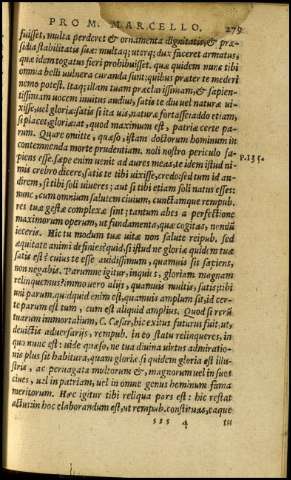 PRO M. MARCELLO. 279
fuisset, multa perderet & ornamenta dignitatis, & præ-
sidia stabilitatis suæ: multaq; utrq; dux faceret armatus,
quæ idem togatus fieri prohibuisset. quæ quidem nunc tibi
omnia belli uulnera curanda sunt: quibus præter te mederi
nemo potest. itaq; illam tuam præclarissimam, & sapien-
tissimam uocem inuitus audiui, satis te diu uel naturæ ui-
xisse, uel gloriæ. satis si ita uis, naturæ fortasse: addo etiam,
si placet, gloriæ: at, quod maximum est, patriæ certe pa-
rum. Quare omitte, quæso, istam doctorum hominum in
contemnenda morte prudentiam. noli nostro periculo sa-
piens esse. sæpe enim uenit ad aures meas, te idem istud ni-
mis crebro dicere, satis te tibi uixisse, credo: sed tum id au-
direm, si tibi soli uiueres; aut si tibi etiam soli natus esses:
nunc, cum omnium salutem ciuium, cunctamque rempub.
res tuæ gestæ complexæ sint; tantum abes a perfectione
maximorum operum, ut fundamenta, quæ cogitas, nondum
ieceris. Hic tu modum tuæ uitæ non salute reipub. sed
æquitate animi definies? quid, si istud ne gloriæ quidem tuæ
satis est? cuius te esse auidissimum, quamuis sis sapiens,
non negabis. Parumne igitur, inquis, gloriam magnam
relinquemus? immo uero alijs, quamuis multis, satis; tibi
uni parum. quidquid enim est, quamuis amplum sit, id cer-
te parum est tum, cum est aliquid amplius. Quod si rerum
tuarum immortalium, C. Cæsar, hic exitus futurus fuit, ut,
deuictis aduersarijs, rempub. in eo statu relinqueres, in
quo nunc est: uide quæso, ne tua diuina uirtus admiratio-
nis plus sit habitura, quam gloriæ. si quidem gloria est illu-
stris, ac peruagata multorum & magnorum uel in suos
ciues, uel in patriam, uel in omne genus hominum fama
meritorum. Hæc igitur tibi reliqua pars est: hic restat
actus: in hoc elaborandum est, ut rempub. constituas, eaque
sss 4 tu
P. 135.